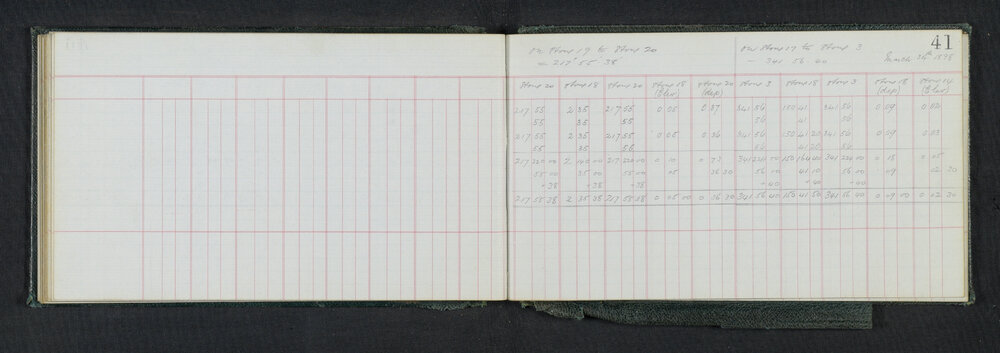 41
On Stone 19 to Stone 20 On Stone 17 to Stone 3
= 217° 55 38 = 341 56 40 March 1898
Stone 20 Stone 18 Stone 20 Stone 18 Stone 20 Stone 3 Stone 18 Stone 3 Stone 18
(Elev) (dep) (dep) (Elev)
217 55 2 35 217 55 0 05 0 37 341 56 150 41 341 56 0 09 0 02
55 35 55 56 41 56
217 55 2 35 217 55 0 05 0 36 341 56 150 41 20 341 56 0 09 0 03
55 35 55 56 41 20 56
217 220 00 2 140 00 217 220 00 0 10 0 73 341 224 00 150 164 40 341 224 00 0 18 0 05
55 00 35 00 55 00 05 36 30 56 00 41 10 56 00 09 02 30
+38 +38 +38 +40 +40 +40
217 55 38 2 35 38 217 55 38 0 05 00 0 36 30 341 56 40 150 41 50 341 56 40 0 09 00 0 02 30